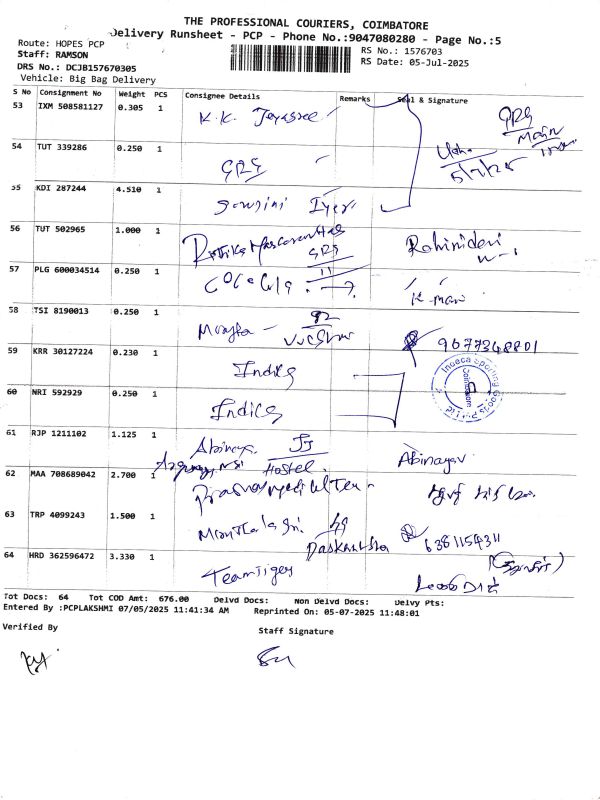 THE PROFESSIONAL COURIERS, COIMBATORE
Delivery Runsheet - PCP - Phone No.:9047080280 - Page No.:5
Route: HOPES PCP
Staff: RAMSON
DRS No.: DCJB157670305
Vehicle: Big Bag Delivery
RS No.: 1576703
RS Date: 05-Jul-2025
S No Consignment No Weight PCS Consignee Details Remarks Seal & Signature
53 IXM 508581127 0.305 1 K.K. Jeyasree GRG Main
54 TUT 339286 0.250 1 GRG Usha 5/7/25
55 KDI 287244 4.510 1 Sowmini Iyer
56 TUT 502965 1.000 1 GRG Rohinidevi
57 PLG 600034514 0.250 1 Coca Cola K-mani
58 TSI 8190013 0.250 1 9677348801
59 KRR 30127224 0.230 1 Indica
Inoeca Sporting Goods Pvt Ltd Coimbatore
60 NRI 592929 0.250 1 Indica
61 RJP 1211102 1.125 1 Abinaya JJ Hostel Abinayav
62 MAA 708689042 2.700 1
63 TRP 4099243 1.500 1 6381154311
64 HRD 362596472 3.330 1 Teamtiger
Tot Docs: 64 Tot COD Amt: 676.00 Delvd Docs: Non Delvd Docs: Delvy Pts:
Entered By :PCPLAKSHMI 07/05/2025 11:41:34 AM Reprinted On: 05-07-2025 11:48:01
Verified By
Staff Signature